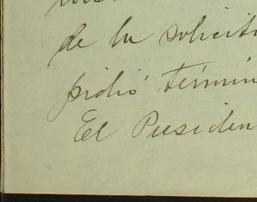 de la solicit
pidió términ
El Presiden